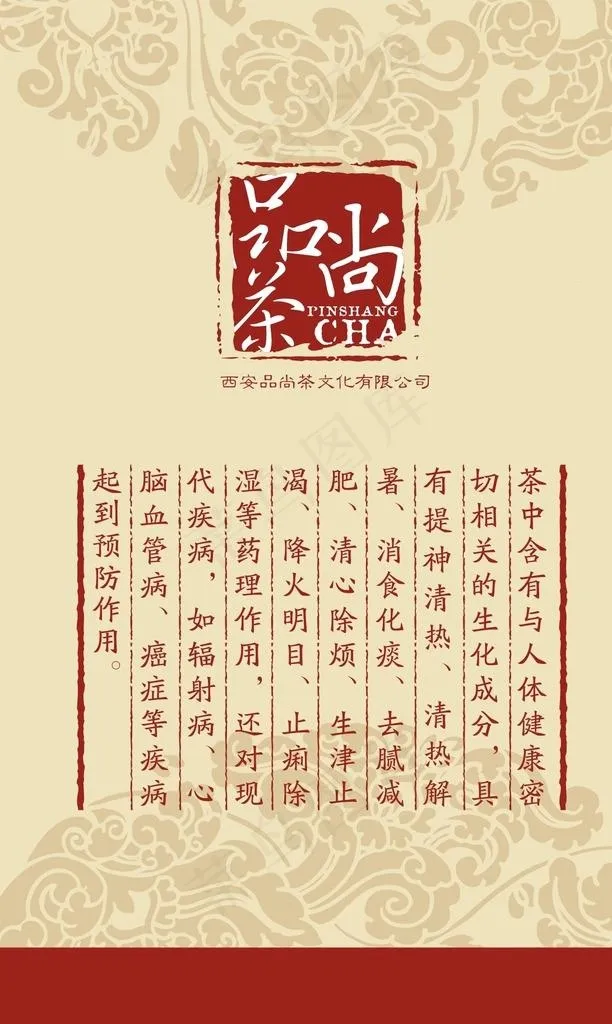 品尚茶
PINSHANG
CHA
西安品尚茶文化有限公司
茶中含有与人体健康密
切相关的生化成分，具
有提神清热、清热解
暑、消食化痰、去腻减
肥、清心除烦、生津止
渴、降火明目、止痢除
湿等药理作用，还对现
代疾病，如辐射病、心
脑血管病、癌症等疾病
起到预防作用。